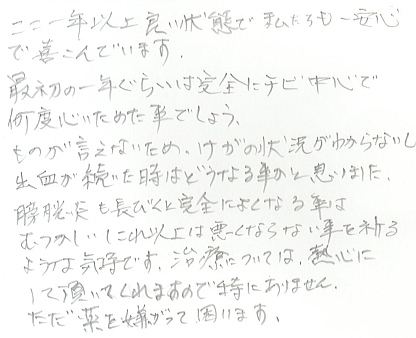 ここ一年以上良い状態で私たちも一安心
で喜こんでいます。
最初の一年ぐらいは完全にチビ中心で
何度心いためた事でしょう。
ものが言えないため、けがの状況がわからないし
出血が続いた時はどうなる事かと思いました。
膀胱炎も長びくと完全によくなる事は
むつかしいしこれ以上は悪くならない事を祈る
ような気持です。治療については、熱心に
して頂いてくれますので特にありません。
ただ薬を嫌がって困ります。